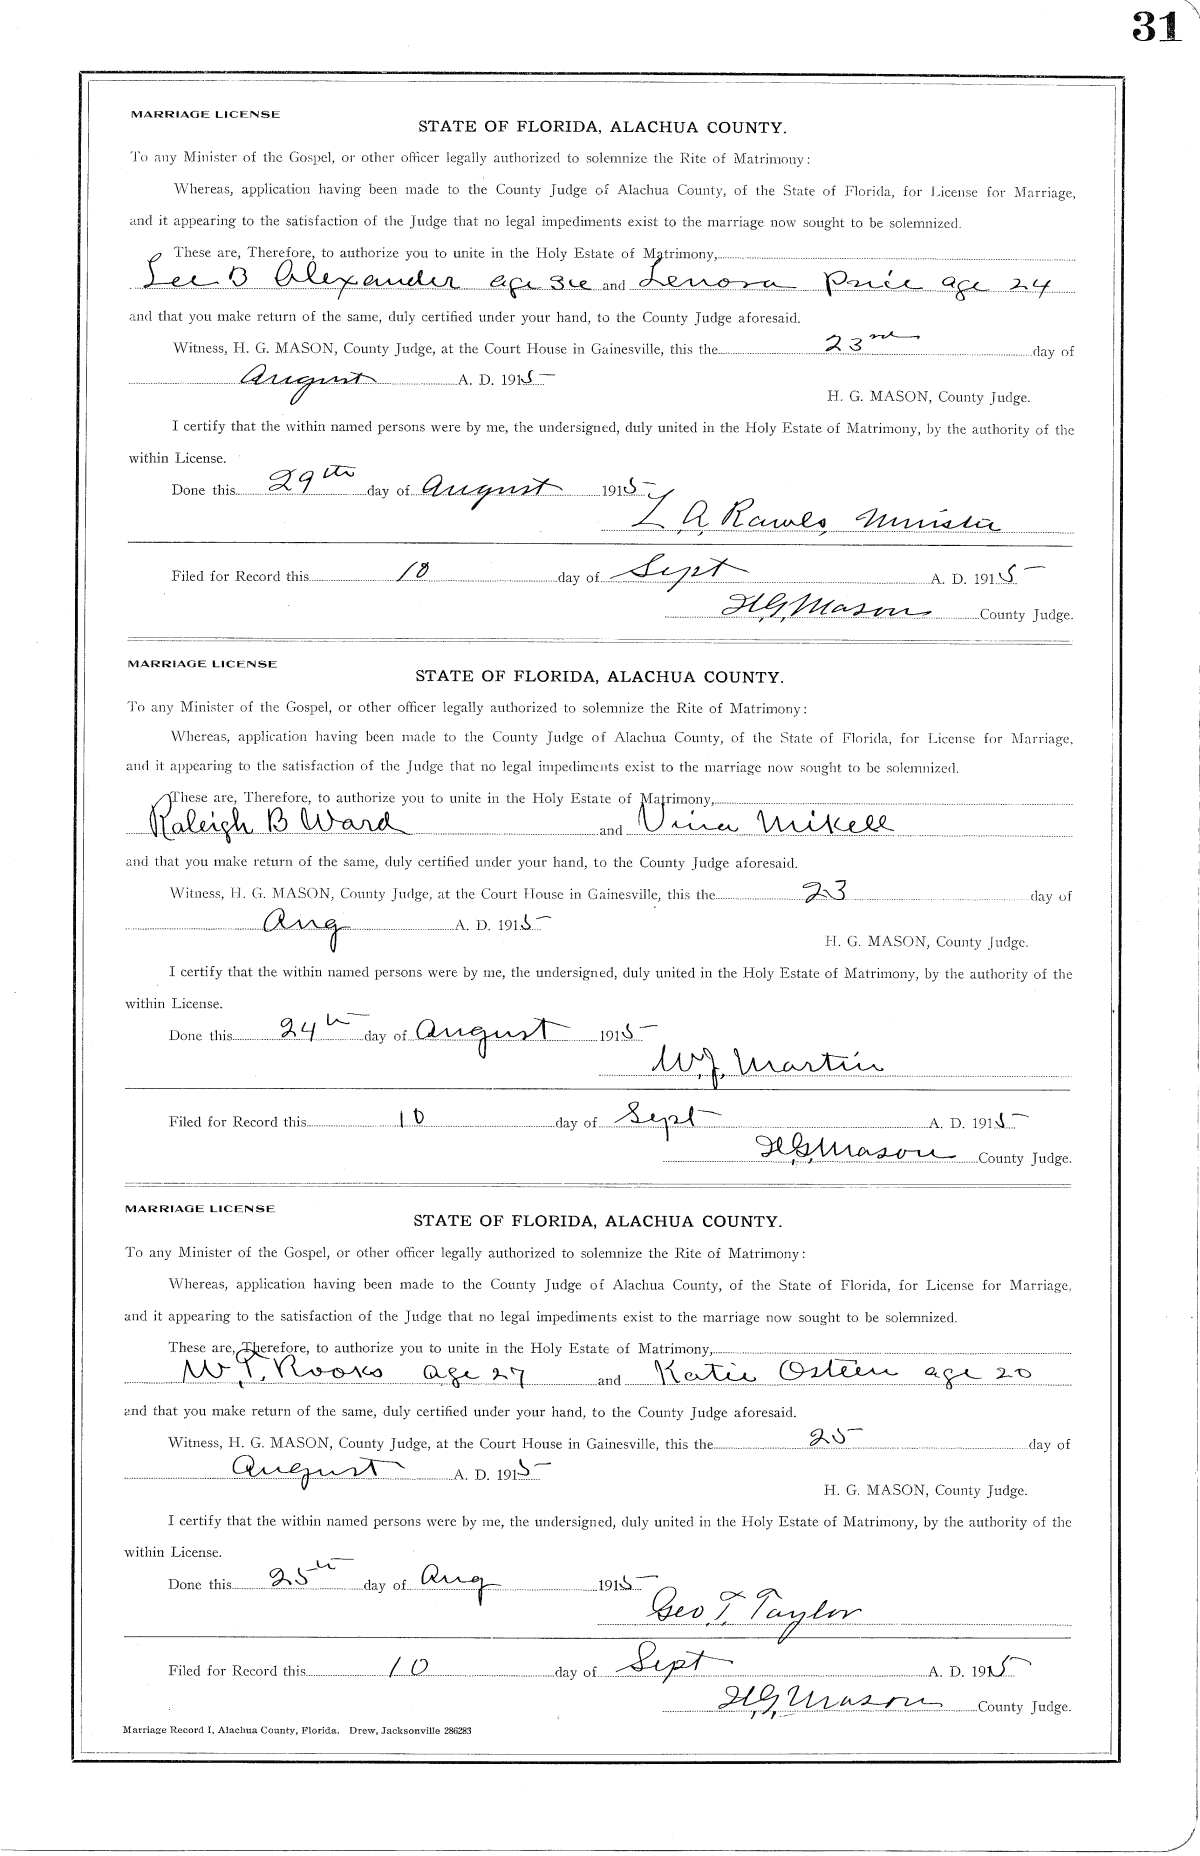 31
MARRIAGE LICENSE
STATE OF FLORIDA, ALACHUA COUNTY.
To any Minister of the Gospel, or other officer legally authorized to solemnize the Rite of Matrimony:
Whereas, application having been made to the County Judge of Alachua County, of the State of Florida, for License for Marriage,
and it appearing to the satisfaction of the Judge that no legal impediments exist to the marriage now sought to be solemnized.
These are, Therefore, to authorize you to unite in the Holy Estate of Matrimony,
Lee B Alexander age and Lenora Price age 24
and that you make return of the same, duly certified under your hand, to the County Judge aforesaid.
Witness, H. G. MASON, County Judge, at the Court House in Gainesville, this the 23rd day of
August A. D. 1915
H. G. MASON, County Judge.
I certify that the within named persons were by me, the undersigned, duly united in the Holy Estate of Matrimony, by the authority of the
within License.
Done this 29th day of August 1915
L A Rawls, Minister
Filed for Record this 10 day of Sept A. D. 1915
H.G. Mason County Judge.
MARRIAGE LICENSE
STATE OF FLORIDA, ALACHUA COUNTY.
To any Minister of the Gospel, or other officer legally authorized to solemnize the Rite of Matrimony:
Whereas, application having been made to the County Judge of Alachua County, of the State of Florida, for License for Marriage,
and it appearing to the satisfaction of the Judge that no legal impediments exist to the marriage now sought to be solemnized.
These are, Therefore, to authorize you to unite in the Holy Estate of Matrimony,
Raleigh B Ward and Vina Mikell
and that you make return of the same, duly certified under your hand, to the County Judge aforesaid.
Witness, H. G. MASON, County Judge, at the Court House in Gainesville, this the 23 day of
Aug A. D. 1915
H. G. MASON, County Judge.
I certify that the within named persons were by me, the undersigned, duly united in the Holy Estate of Matrimony, by the authority of the
within License.
Done this 24th day of August 1915
W.J. Martin
Filed for Record this 10 day of Sept A. D. 1915
H.G. Mason County Judge.
MARRIAGE LICENSE
STATE OF FLORIDA, ALACHUA COUNTY.
To any Minister of the Gospel, or other officer legally authorized to solemnize the Rite of Matrimony:
Whereas, application having been made to the County Judge of Alachua County, of the State of Florida, for License for Marriage,
and it appearing to the satisfaction of the Judge that no legal impediments exist to the marriage now sought to be solemnized.
These are, Therefore, to authorize you to unite in the Holy Estate of Matrimony,
W.T. Rooks age 27 and Katie Osteen age 20
and that you make return of the same, duly certified under your hand, to the County Judge aforesaid.
Witness, H. G. MASON, County Judge, at the Court House in Gainesville, this the 25 day of
August A. D. 1915
H. G. MASON, County Judge.
I certify that the within named persons were by me, the undersigned, duly united in the Holy Estate of Matrimony, by the authority of the
within License.
Done this 25th day of Aug 1915
Geo. T. Taylor
Filed for Record this 10 day of Sept A. D. 1915
H.G. Mason County Judge.
Marriage Record I, Alachua County, Florida. Drew, Jacksonville 286283